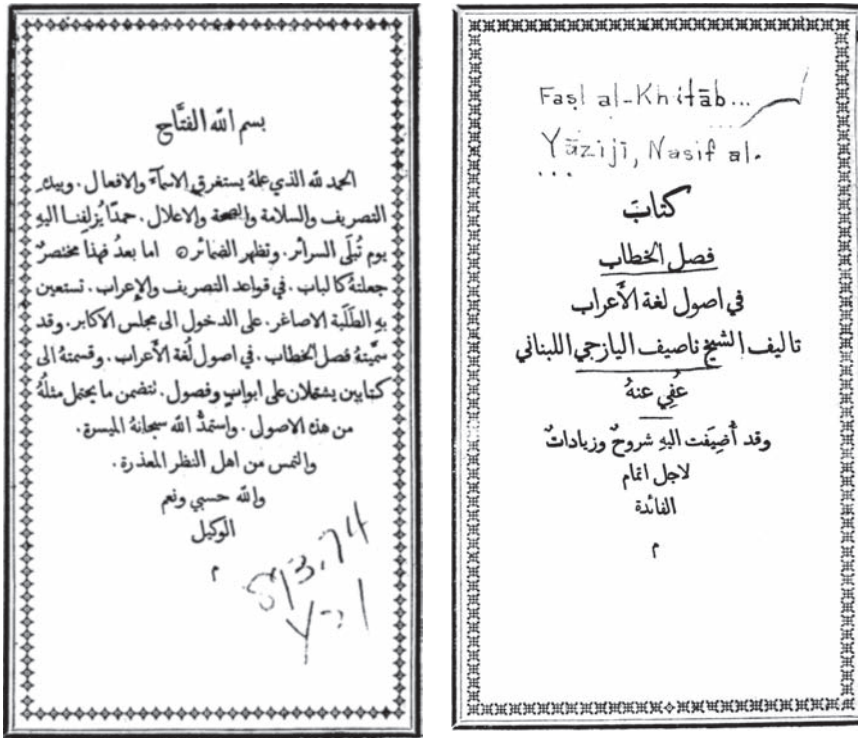 Faṣl al-Khiṭāb...
Yāzijī, Nasif al-
كتاب
فصل الخطاب
في اصول لغة الأعراب
تاليف الشيخ ناصيف اليازجي اللبناني
عُفِي عنهُ
وقد أُضِيفَت اليهِ شروحٌ وزياداتٌ
لاجل اتمام
الفائدة
م
بسم الله الفتَّاح
الحمد لله الذي علمهُ يستغرق الاسمآءَ والافعال. وبيدهِ
التصريف والسلامة والصحة والاعلال. حمدًا يُزلِفنا اليهِ
يوم تُبلَى السرائر. وتظهر الضمائر ۞ اما بعدُ فهذا مختصرٌ
جعلتهُ كالباب. في قواعد التصريف والإعراب. تستعين
بهِ الطَلَبة الاصاغر. على الدخول الى مجلس الاكابر. وقد
سمَّيتهُ فصل الخطاب. في اصول لُغة الأعراب. وقسمتهُ الى
كتابين يشتملان على ابوابٍ وفصول. تتضمن ما يحتمل مثلُهُ
من هذه الاصول. واستمدُّ الله سبحانهُ الميسرة.
والتمس من اهل النظر المعذرة.
والله حسبي ونعم
الوكيل
م